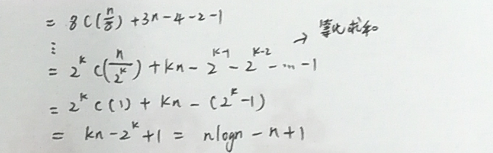 = 8C(n/8) + 3n - 4 - 2 - 1
⋮ → 等比求和
= 2^k C(n/2^k) + kn - 2^{k-1} - 2^{k-2} - ... - 1
= 2^k C(1) + kn - (2^k - 1)
= kn - 2^k + 1 = nlogn - n + 1